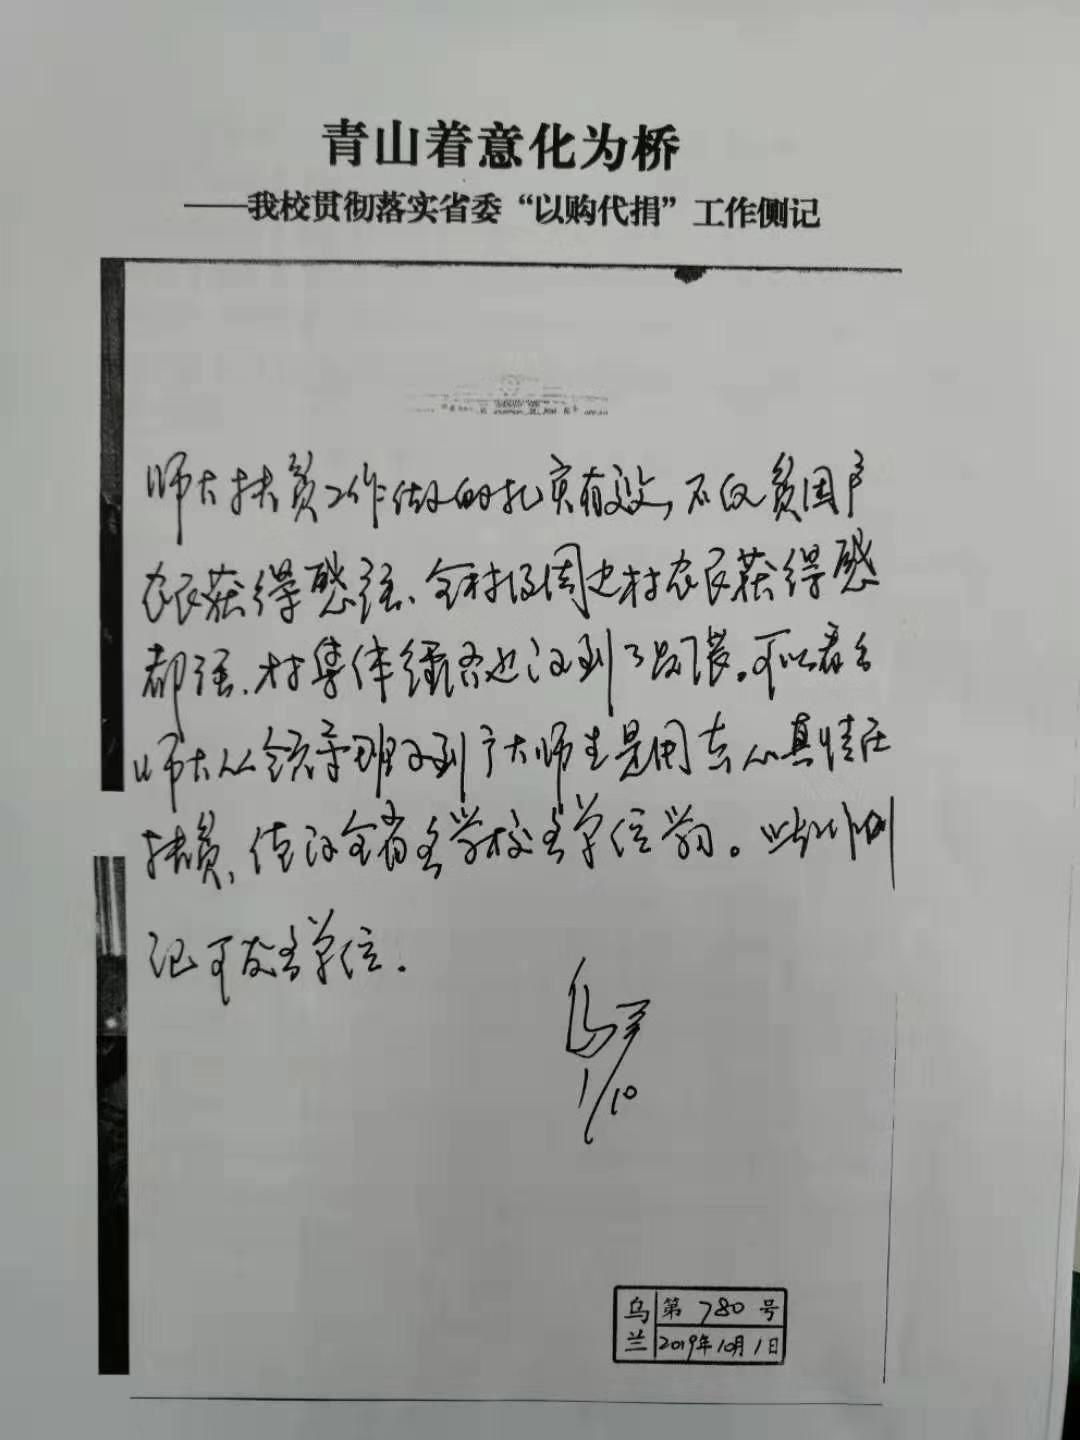 青山着意化为桥
——我校贯彻落实省委“以购代捐”工作侧记
师大扶贫工作做的扎实有效，不仅贫困户
农民获得感强、全村及周边村农民获得感
都强、村集体经济也得到了发展。可以看出
师大从领导班子到广大师生是用真情在
扶贫，值得全省各学校各单位学习。此工作侧
记可发各单位。
乌兰
1/10
乌兰
第 780 号
2019年10月1日